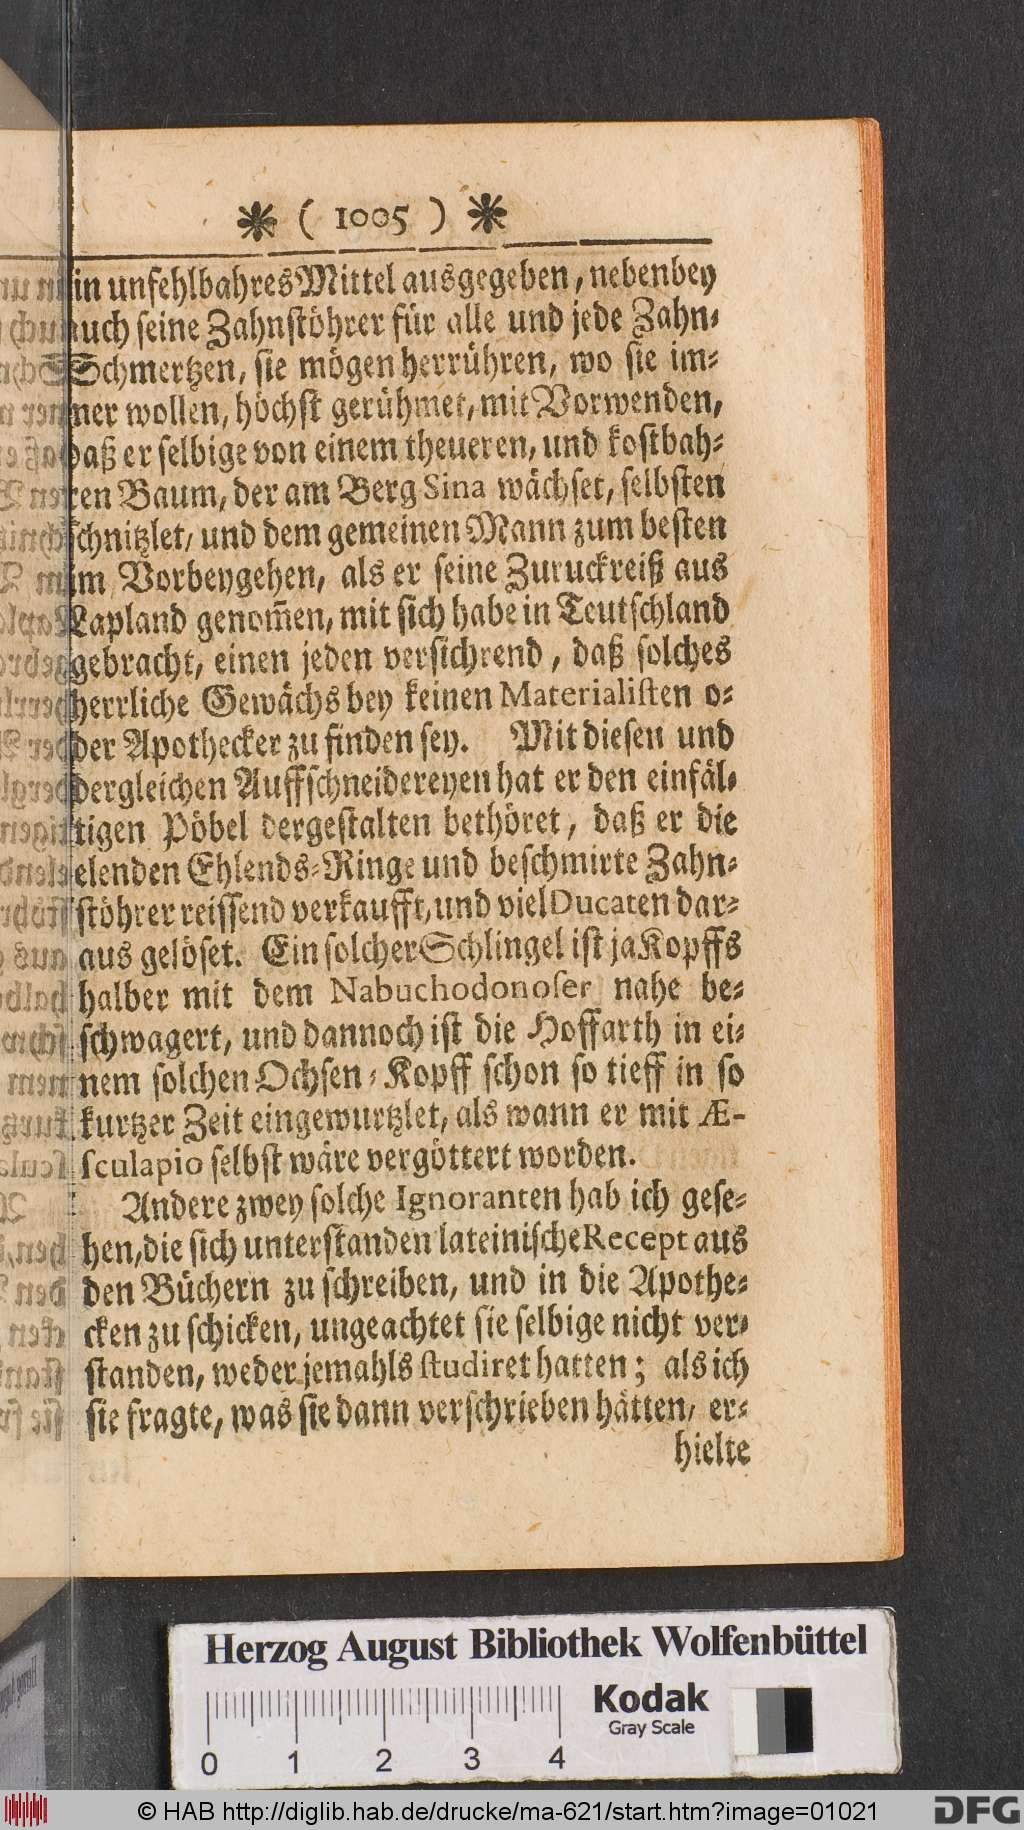 * ( 1005 ) *
in unfehlbahres Mittel ausgegeben, nebenbey
uch seine Zahnstöhrer für alle und jede Zahn-
Schmertzen, sie mögen herrühren, wo sie im-
ner wollen, höchst gerühmet, mit Vorwenden,
daß er selbige von einem theueren, und kostbah-
ren Baum, der am Berg Sina wächset, selbsten
schnitzlet, und dem gemeinen Mann zum besten
im Vorbeygehen, als er seine Zuruckreiß aus
Lapland genom̄en, mit sich habe in Teutschland
gebracht, einen jeden versichrend, daß solches
herrliche Gewächs bey keinen Materialisten o-
der Apothecker zu finden sey. Mit diesen und
dergleichen Auffschneidereyen hat er den einfäl-
tigen Pöbel dergestalten bethöret, daß er die
elenden Ehlends-Ringe und beschmirte Zahn-
stöhrer reissend verkaufft, und viel Ducaten dar-
aus gelöset. Ein solcher Schlingel ist ja Kopffs
halber mit dem Nabuchodonoser nahe be-
schwagert, und dannoch ist die Hoffarth in ei-
nem solchen Ochsen-Kopff schon so tieff in so
kurtzer Zeit eingewurtzlet, als wann er mit Æ-
sculapio selbst wäre vergöttert worden.
Andere zwey solche Ignoranten hab ich gese-
hen, die sich unterstanden lateinische Recept aus
den Büchern zu schreiben, und in die Apothe-
cken zu schicken, ungeachtet sie selbige nicht ver-
standen, weder jemahls studiret hatten; als ich
sie fragte, was sie dann verschrieben hätten, er-
hielte
Herzog August Bibliothek Wolfenbüttel
Kodak
Gray Scale
0 1 2 3 4
© HAB http://diglib.hab.de/drucke/ma-621/start.htm?image=01021
DFG